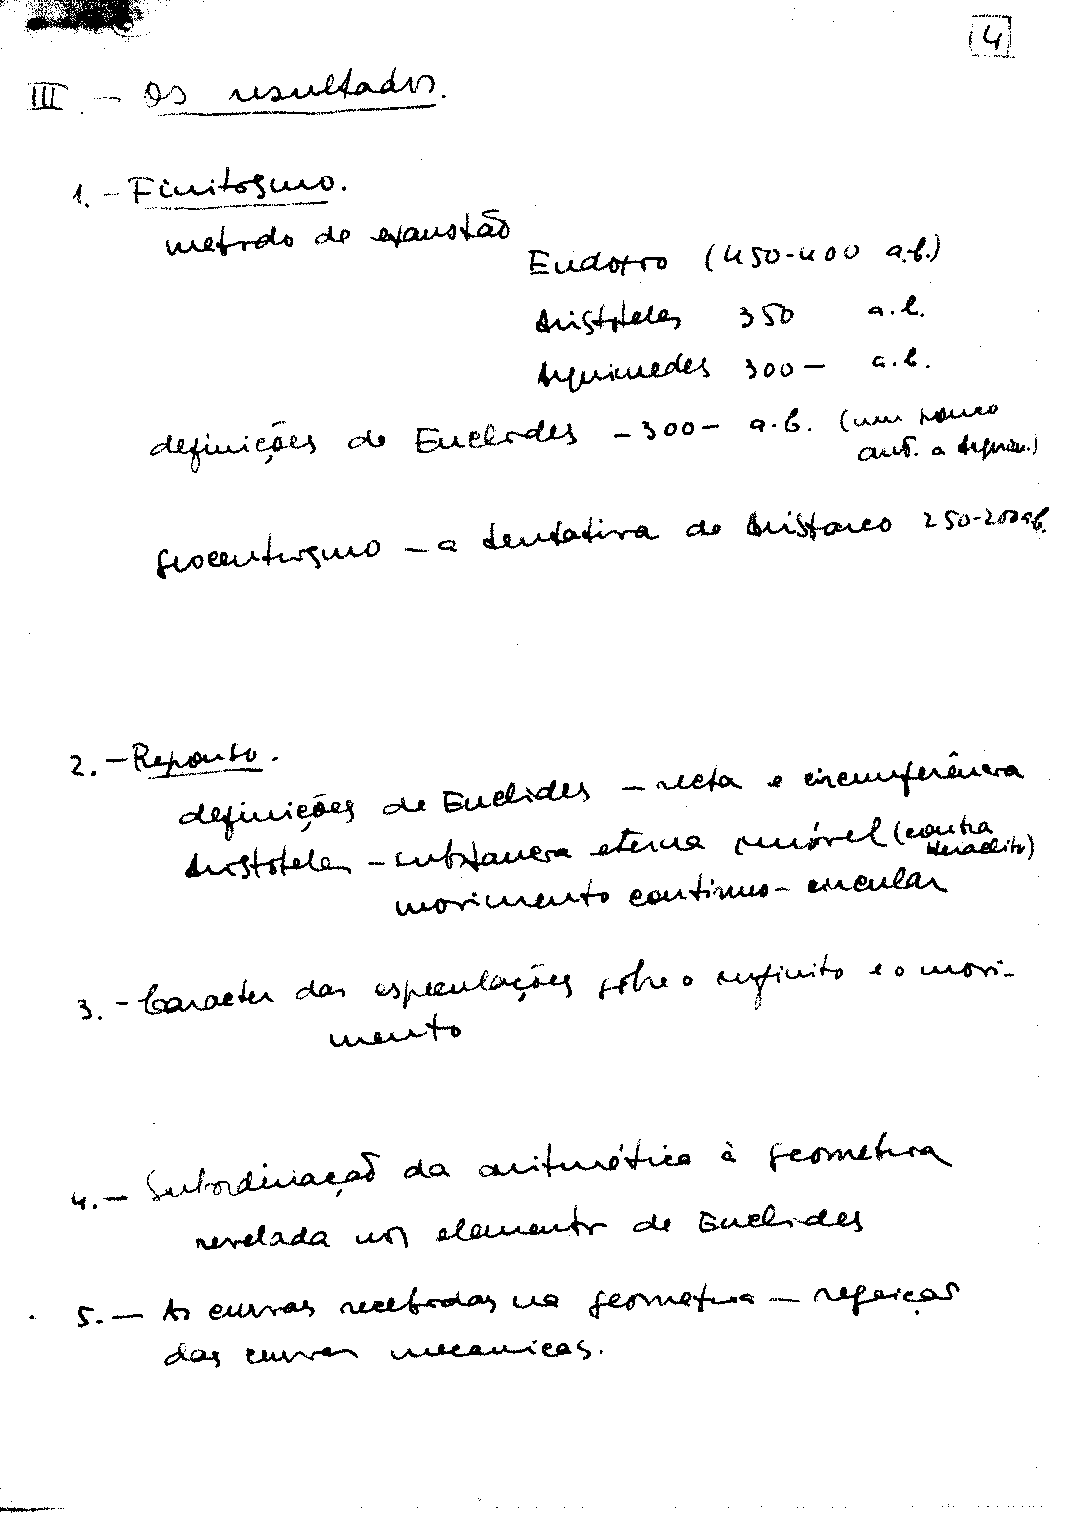 4
III - Os resultados.
1. - Finitismo.
metodo de exaustão
Eudoxo (450-400 a.C.)
Aristoteles 350 a.C.
Arquimedes 300 - a.C.
definições de Euclides - 300 - a.C. (um pouco
ant. a Arquim.)
geocentrismo - a tentativa de Aristarco 250-200 a.C.
2. - Repouso.
definições de Euclides - recta e circumferência
Aristoteles - substancia eterna imóvel (contra
Heraclito)
movimento continuo - circular
3. - Caracter das especulações sobre o infinito e o movi-
mento
4. - Subordinação da aritmética à geometria
revelada nos elementos de Euclides
5. - As curvas recebidas na geometria - rejeição
das curvas mecanicas.